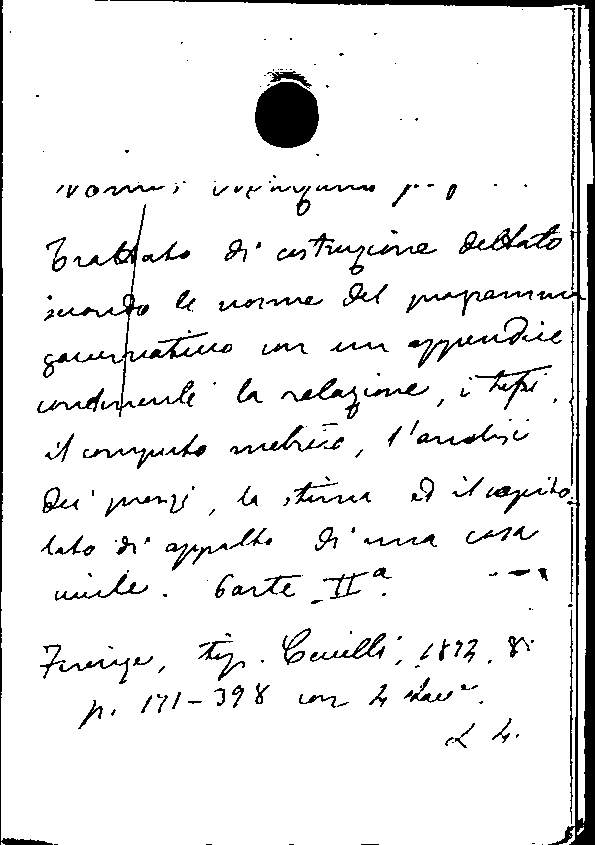 Trattato di costruzione dettato
secondo le norme del programma
governativo con un appendice
contenente la relazione, i tipi,
il computo metrico, l'analisi
dei prezzi, la stima ed il capito
lato di appalto di una casa
civile. Parte IIª.
Firenze, tip. Cenelli, 1872. 8:
p. 171-398 con 4 tavᵉ.
L 4.